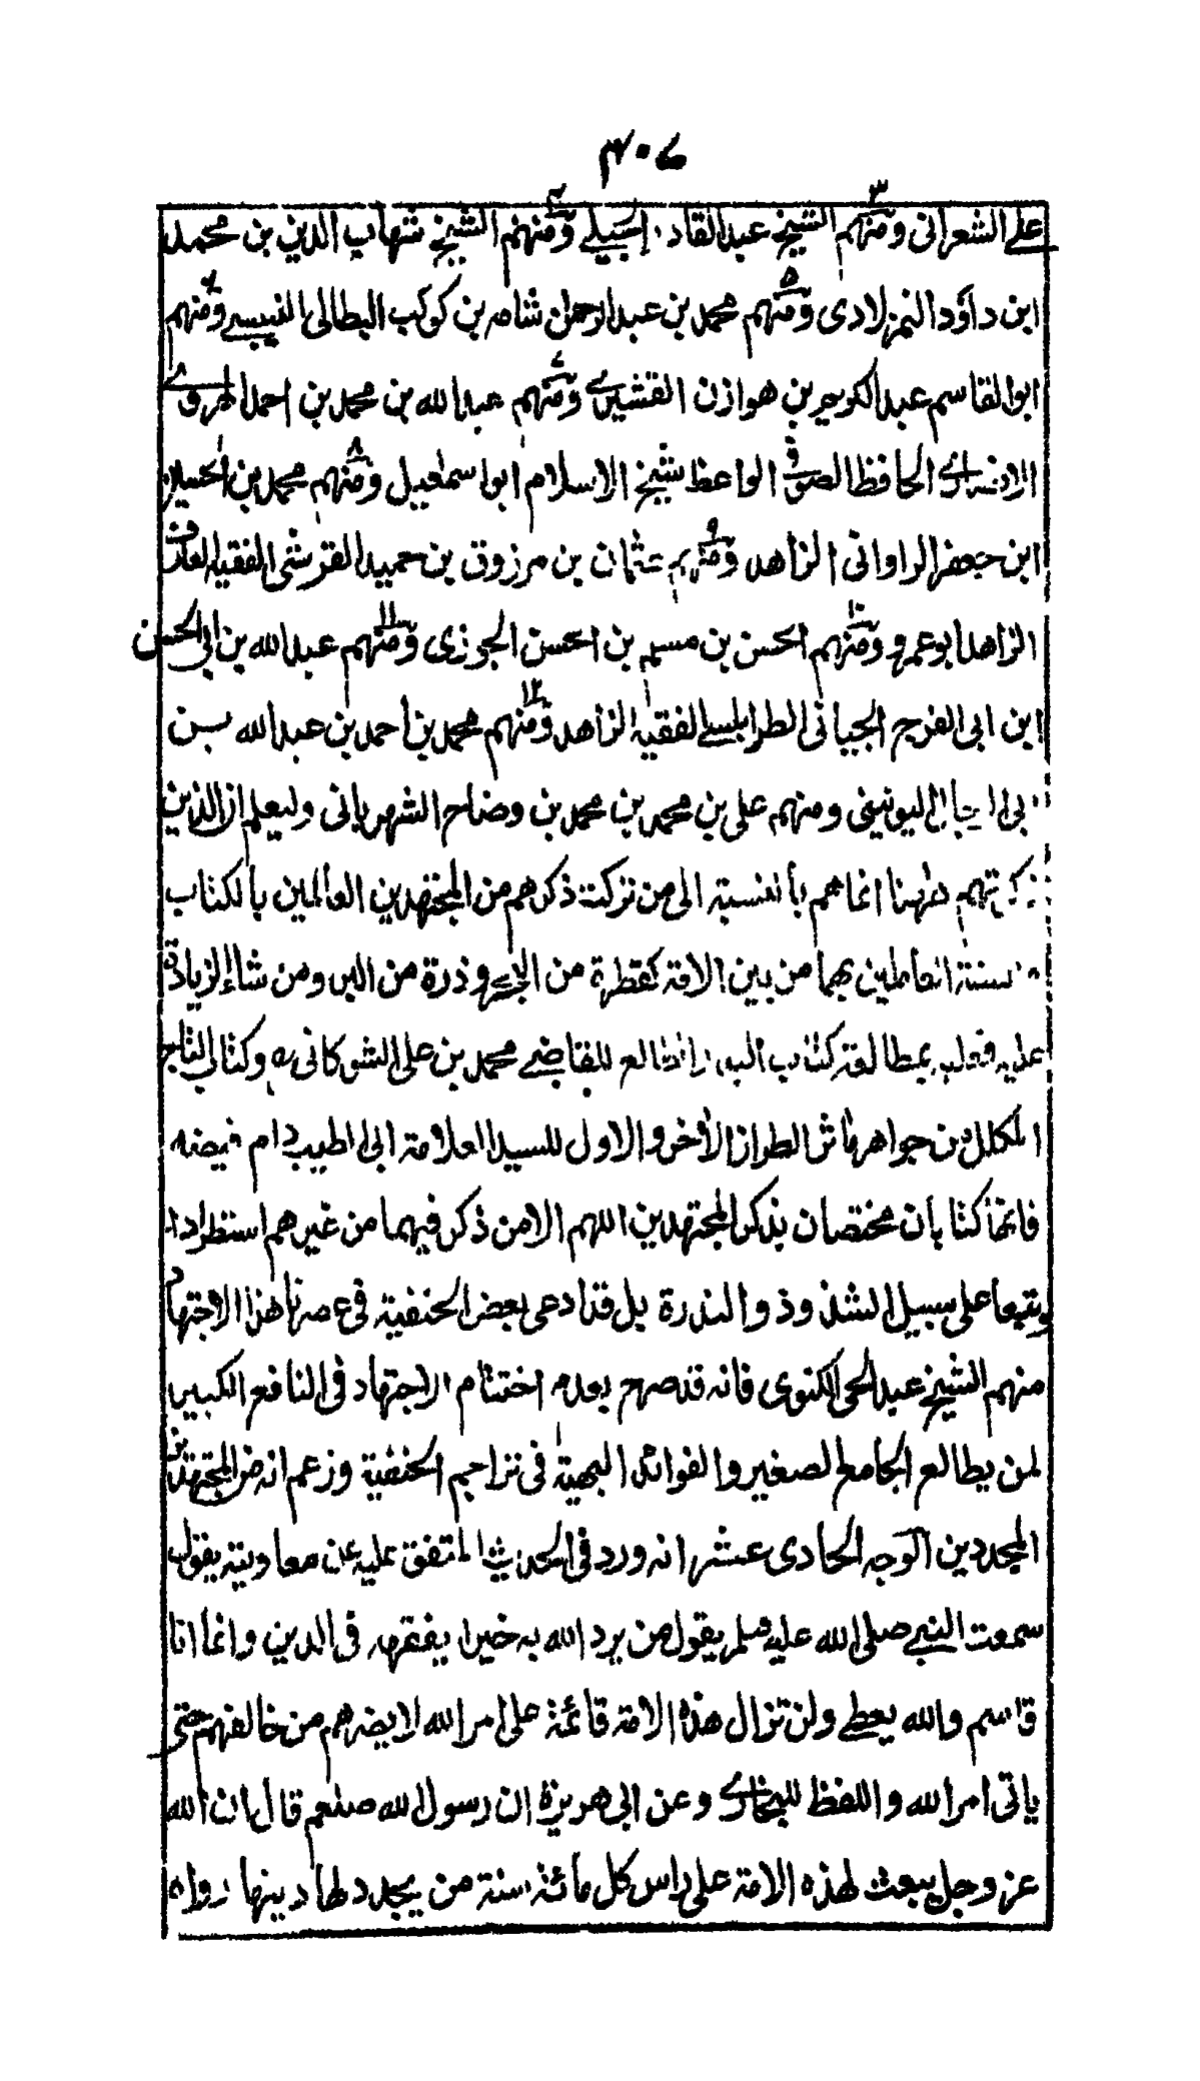 ٣٠٧
على الشعرانى ومنهم٣ الشيخ عبدالقادر الجيلے ومنهم٤ الشيخ شهاب الدين بن محمد
ابن داؤد النمزلادى ومنهم٥ محمد بن عبدالرحمن شامه بن كوكب البطالى النفيسے ومنهم٦
ابوالقاسم عبدالكريم بن هوازن القشيرے ومنهم٧ عبدالله بن محمد بن احمد الهروے
الانصارے الحافظ الصوفى الواعظ شيخ الاسلام ابواسمعيل ومنهم٨ محمد بن الحسين
ابن جعفر الراوانى الزاهد ومنهم٩ عثمان بن مرزوق بن حميد القرشى الفقيه العارف
الزاهد ابوعمرو ومنهم١٠ الحسن بن مسلم بن الحسن الجوزى ومنهم١١ عبدالله بن ابى الحسن
ابن ابى الفرج الجبيائى الطرابلسے الفقيه الزاهد ومنهم١٢ محمد بن احمد بن عبدالله بن
ابى الرجال اليونينى ومنهم على بن محمد بن محمد بن وضاح الشهربانى وليعلم ان الذين
ذكرتهم ههنا انما هم بالنسبة الى من تركت ذكرهم من المجتهدين العالمين بالكتاب
والسنة العاملين بهما من بين الامة كقطرة من البحر وذرة من البر ومن شاء الزيادة
عليه فعليه بمطالعة كتاب البدر الطالع للقاضے محمد بن على الشوكانى ره وكتاب التاج
المكلل من جواهر مآثر الطراز الآخر والاول للسيد العلامة ابى الطيب دام فيضه
فانما كتابان مختصان بذكر المجتهدين اللهم الا من ذكر فيهما من غيرهم استطرادا
وتبعا على سبيل الشذوذ والندرة بل قد ادعى بعض الحنفية فى عصرنا هذا الاجتهاد
منهم الشيخ عبدالحى الكنوى فانه قد صرح بعدم اختتام الاجتهاد فى النافع الكبير
لمن يطالع الجامع الصغير والفوائد البهية فى تراجم الحنفية وزعم انه من المجتهدين
المجددين الوجه الحادى عشر انه ورد فى الحديث المتفق عليه عن معاوية يقول
سمعت النبے صلى الله عليه وسلم يقول من يرد الله به خيرا يفقهه فى الدين وانما انا
قاسم والله يعطے ولن تزال هذه الامة قائمة على امر الله لا يضرهم من خالفهم حتى
ياتى امر الله واللفظ للبخارے وعن ابى هريرة ان رسول الله صلعم قال ان الله
عز وجل يبعث لهذه الامة على راس كل مائة سنة من يجدد لها دينها رواه